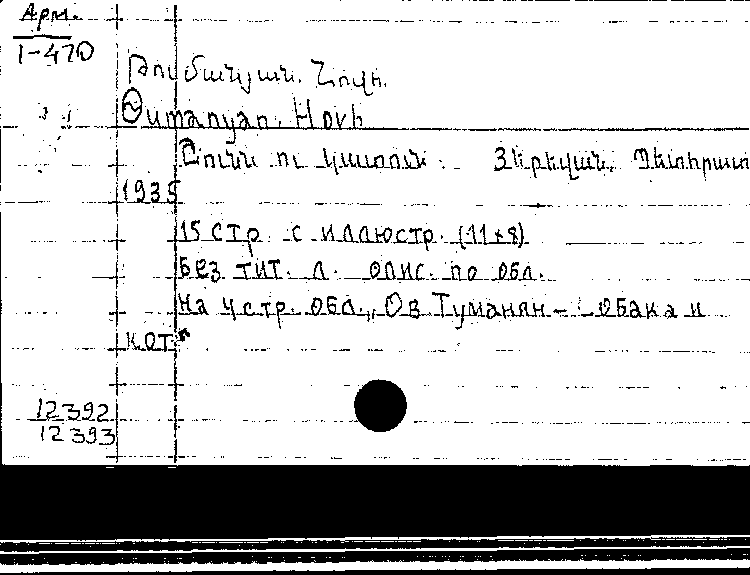 Арм.
1-470
Թումանյան. Հովհ.
Թumanyan. Hovh
Շունն ու կատուն. Յերեվան, Պետհրատ
1935
15 стр. с иллюстр. (11×8)
Без тит. л. опис. по обл.
На 4 стр. обл. „Ов Туманян - Собака и
кот"
12392
12393